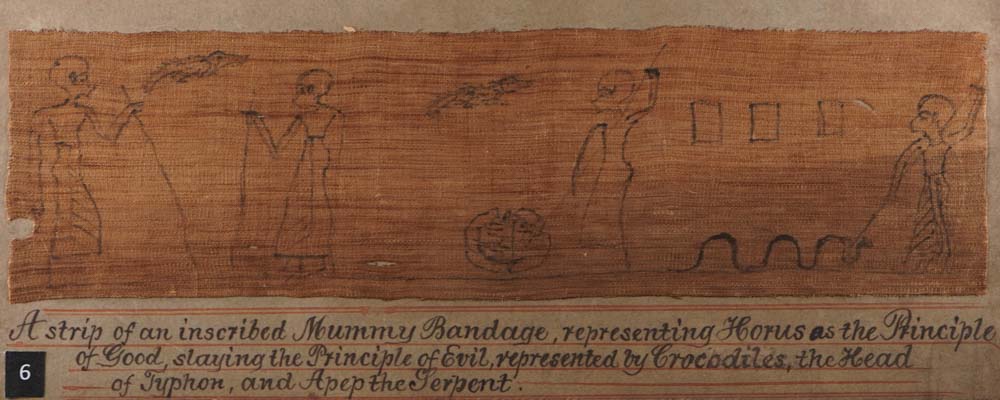 A strip of an inscribed Mummy Bandage, representing Horus as the Principle
of Good, slaying the Principle of Evil, represented by Crocodiles, the Head
of Typhon, and Apep the Serpent.
6